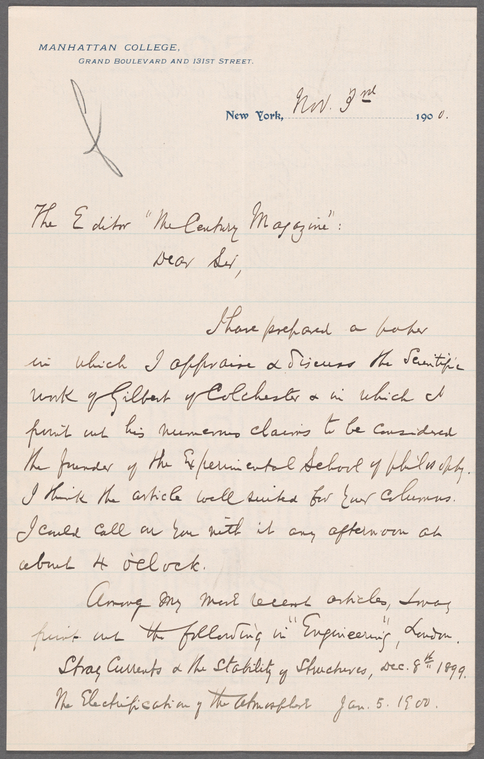 MANHATTAN COLLEGE,
GRAND BOULEVARD AND 131ST STREET.
New York, Nov. 3rd 1900.
The Editor "The Century Magazine":
Dear Sir,
I have prepared a paper
in which I appraise & discuss the scientific
work of Gilbert of Colchester & in which I
point out his numerous claims to be considered
the founder of the Experimental School of philosophy.
I think the article well suited for your columns.
I could call on you with it any afternoon at
about 4 o'clock.
Among my most recent articles, I may
point out the following in "Engineering", London.
Stray Currents & the Stability of Structures, Dec. 8th 1899.
The Electrification of the Atmosphere Jan. 5. 1900.